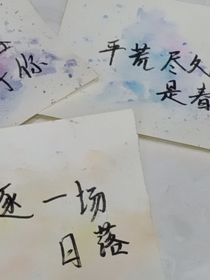 你
平荒尽久
是春
逐一场
日落